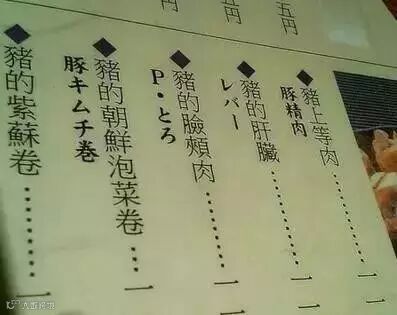 五円
円
円
◆豬上等肉………一
豚精肉
◆豬的肝臟………一
レバー
◆豬的臉頰肉………一
P・とろ
◆豬的朝鮮泡菜卷………一
豚キムチ巻
◆豬的紫蘇卷………一